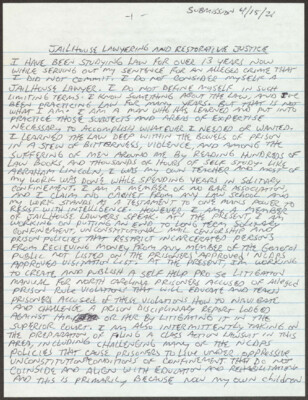 Submission 4/15/21
-1-
JAILHOUSE LAWYERING AND RESTORATIVE JUSTICE
I HAVE BEEN STUDYING LAW FOR OVER 13 YEARS NOW
WHILE SERVING OUT MY SENTENCE FOR AN ALLEGED CRIME THAT
I DID NOT COMMIT. I DO NOT CONSIDER MYSELF A
JAILHOUSE LAWYER. I DO NOT DEFINE MYSELF IN SUCH
LIMITING TERMS. I KNOW SOMETHING ABOUT THE LAW, AND I'VE
BEEN PRACTICING LAW FOR MANY YEARS. BUT THAT IS NOT
WHAT I AM. I AM A MAN WHO HAS LEARNED AND PUT INTO
PRACTICE THOSE SUBJECTS AND AREAS OF EXPERTISE
NECESSARY TO ACCOMPLISH WHATEVER I NEEDED OR WANTED.
I LEARNED THE LAW DEEP WITHIN THE BOWELS OF PRISON
IN A STEW OF BITTERNESS, VIOLENCE, AND AMONG THE
SUFFERING OF MEN AROUND ME BY READING HUNDREDS OF
LAW BOOKS AND THOUSANDS OF HOURS OF SELF STUDY LIKE
ABRAHAM LINCOLN. I WAS MY OWN TEACHER AND MOST OF
MY WORK WAS DONE WHILE SPENDING YEARS IN SOLITARY
CONFINEMENT. I AM A MEMBER OF NO BAR ASSOCIATION,
AND I CLAIM NO DEGREE FROM ANY LAW SCHOOL. BUT
MY WORK STANDS AS A TESTAMENT TO ONE MAN'S POWER TO
RESIST WITH INTELLIGENCE. HOWEVER, I AM A MEMBER
OF JAILHOUSE LAWYERS SPEAK. IN THE PRESENT I AM
WORKING ON PUTTING AN END TO LONG TERM SOLITARY
CONFINEMENT, UNCONSTITUTIONAL MAIL CENSORSHIP AND
PRISON POLICIES THAT RESTRICT INCARCERATED PERSONS
FROM RECEIVING MONEY FROM ANY MEMBER OF THE GENERAL
PUBLIC NOT LISTED ON THE PRISONERS APPROVED NCDPS
APPROVED VISITATION LIST. AT THE PRESENT, I'M WORKING
TO CREATE AND PUBLISH A SELF HELP PRO SE LITIGATION
MANUAL FOR NORTH CAROLINA PRISONERS ACCUSED OF ALLEGED
PRISON RULE VIOLATIONS THAT WILL EDUCATE AND TEACH
PRISONERS ACCUSED OF THESE VIOLATIONS HOW TO NAVIGATE
AND CHALLENGE A PRISON DISCIPLINARY REPORT LODGED
AGAINST HIM OR HER BY LITIGATING IT IN THE
SUPERIOR COURT. I AM ALSO INTERMITTENTLY TAKING ON
THE GROUNDWORK OF FILING A CLASS ACTION LAWSUIT IN THIS
AREA, INCLUDING CHALLENGING MANY OF THE NCDPS
POLICIES THAT CAUSE PRISONERS TO LIVE UNDER OPPRESSIVE
UNCONSTITUTIONAL CONDITIONS OF CONFINEMENT THAT DO NOT
COINSIDE AND ALIGN WITH EDUCATION AND REHABILITATION
AND THIS IS PRIMARILY BECAUSE NOW MY OWN CHILDREN